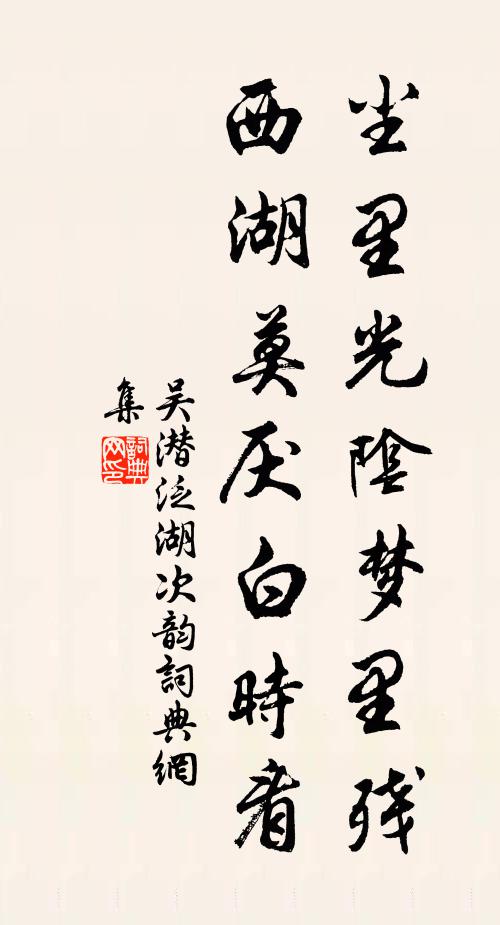 尘里光陰梦里残
西湖莫厌白時看
吴潜泛湖次韵詞典網
集
詞典网印